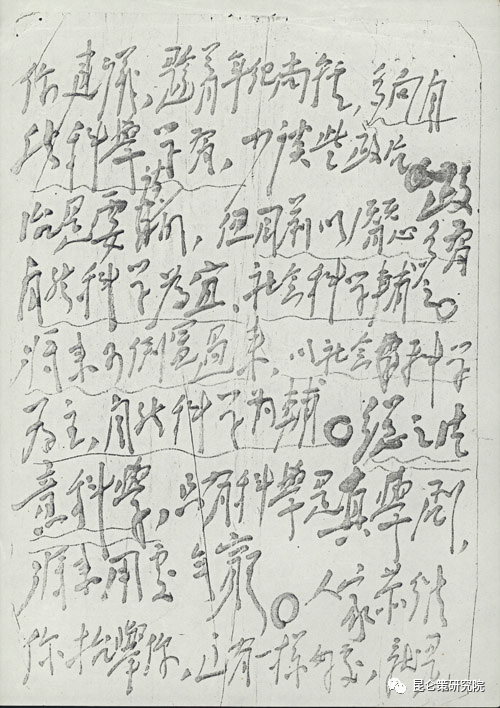 们建議，趁着年纪尚轻，多向自
然科學学習，少谈些政治。政
治是要谈的，但目前以潛心多習
自然科学为宜，社会科学輔之。
将来可倒置过来，以社会科学
为主，自然科学为輔。總之注
意科學，只有科學是真學问，
将来用处無窮。人家恭維
你抬舉你，这有一樣好处，就是
昆仑策研究院